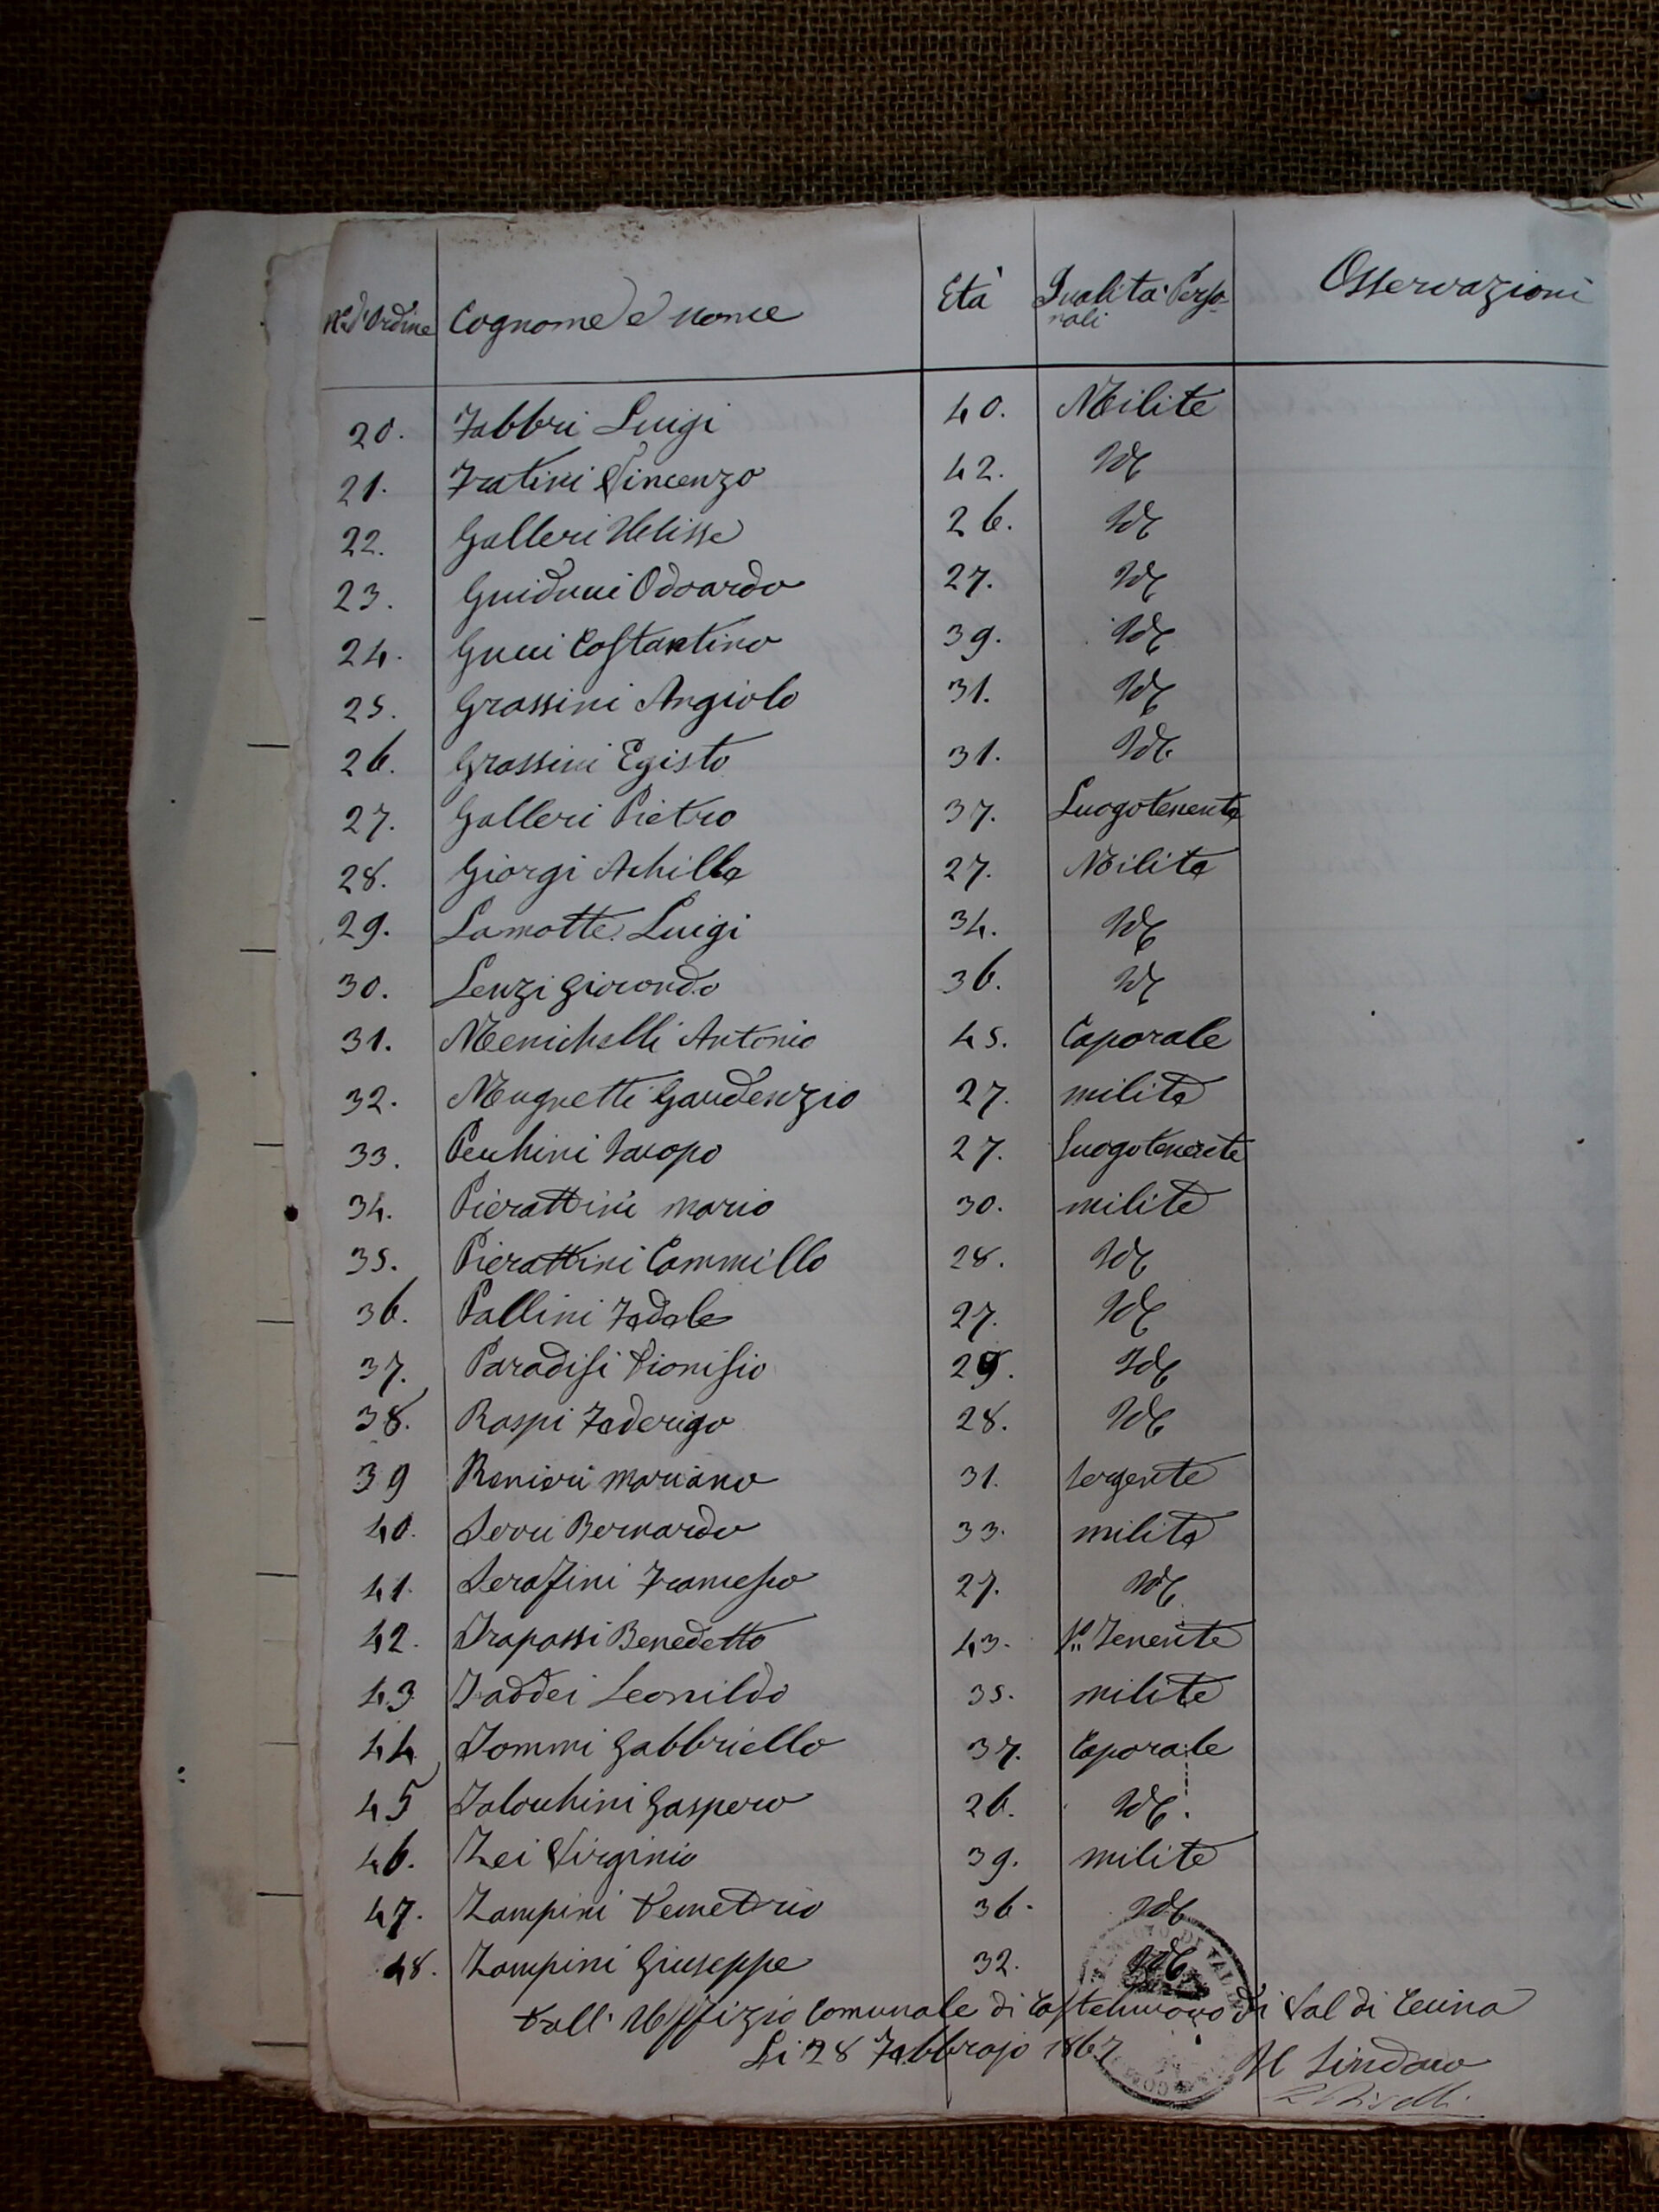 N.o d'Ordine Cognome e nome Età Qualità Perso-
nali Osservazioni
20. Fabbri Luigi 40. Milite
21. Fratini Vincenzo 42. Id.
22. Galleri Ulisse 26. Id.
23. Guiducci Odoardo 27. Id.
24. Gucci Costantino 39. Id.
25. Grassini Angiolo 31. Id.
26. Grassini Egisto 31. Id.
27. Galleri Pietro 37. Luogotenente
28. Giorgi Achille 27. Milite
29. Lamotte Luigi 34. Id.
30. Lenzi Giocondo 36. Id.
31. Menichelli Antonio 45. Caporale
32. Mugnetti Gaudenzio 27. milite
33. Pecchini Iacopo 27. Luogotenente
34. Pierattini Mario 30. milite
35. Pierattini Cammillo 28. Id.
36. Pallini Fedele 27. Id.
37. Paradisi Dionisio 29. Id.
38. Raspi Federigo 28. Id.
39 Renieri Mariano 31. Sergente
40. Servi Bernardo 33. milite
41. Serafini Francesco 27. Id.
42. Trapassi Benedetto 43. Tenente
43 Taddei Leonildo 35. milite
44 Tommi Gabbriello 37. Caporale
45 Talouchini Gaspero 26. Id.
46. Zei Virginio 39. milite
47. Zampini Demetrio 36. Id.
48. Zampini Giuseppe 32. Id.
Dall' Uffizio Comunale di Castelnuovo di Val di Cecina
Li 28 Febbrajo 1867
Il Sindaco